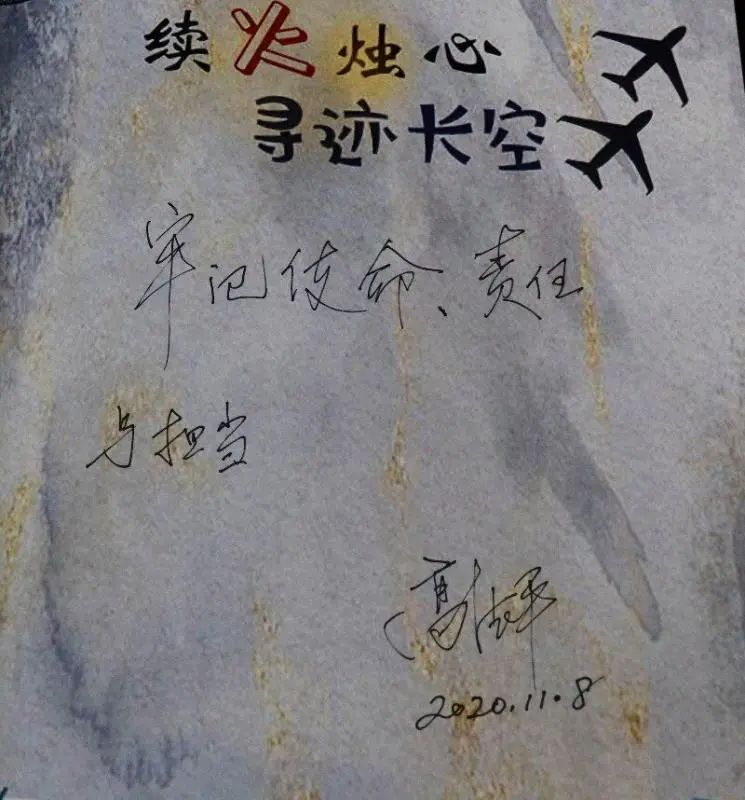 续火烛心
寻迹长空
牢记使命、责任
与担当
2020.11.8